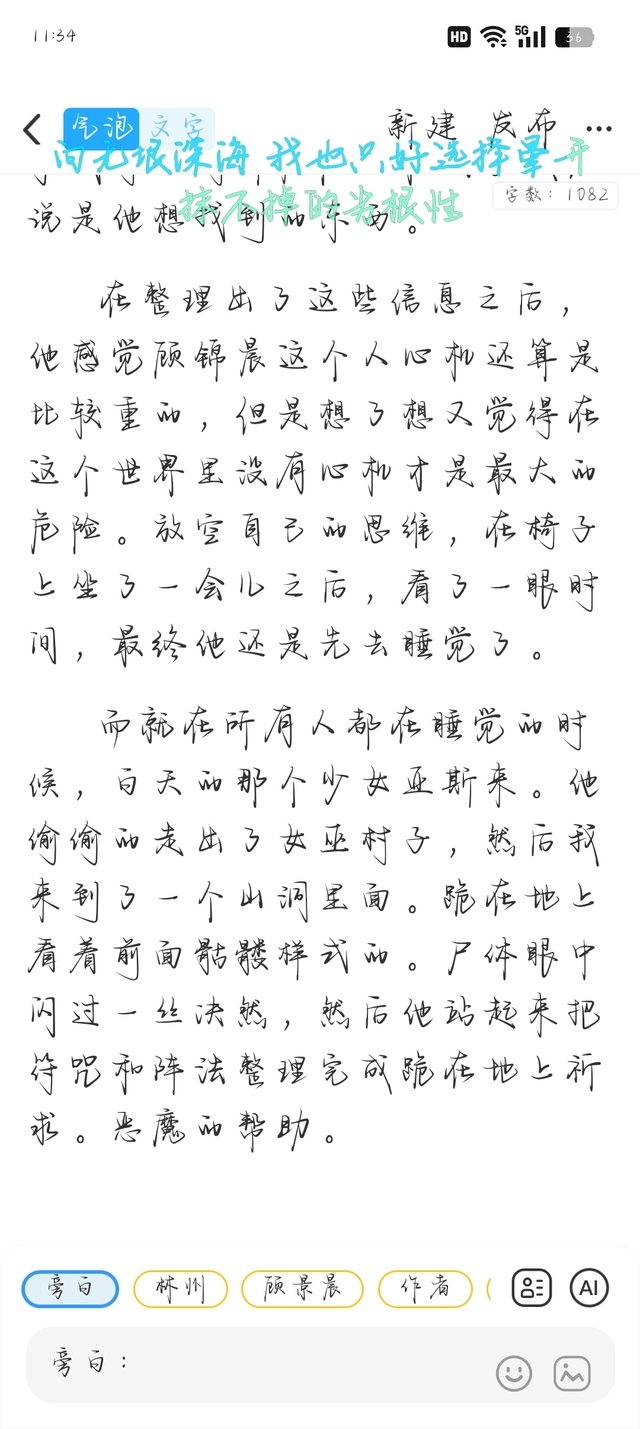 11:34 HD 5G 36
气泡 文字 新建 发布 ...
向无垠深海 我也只好选择晕开
抹不掉的劣根性
字数：1082
说是他想找到的东西。
在整理出了这些信息之后，
他感觉顾锦晨这个人心机还算是
比较重的，但是想了想又觉得在
这个世界里没有心机才是最大的
危险。放空自己的思维，在椅子
上坐了一会儿之后，看了一眼时
间，最终他还是先去睡觉了。
而就在所有人都在睡觉的时
候，白天的那个少女亚斯来。他
偷偷的走出了女巫村子，然后我
来到了一个山洞里面。跪在地上
看着前面骷髅样式的。尸体眼中
闪过一丝决然，然后他站起来把
符咒和阵法整理完成跪在地上祈
求。恶魔的帮助。
旁白 林州 顾景晨 作者 AI
旁白：